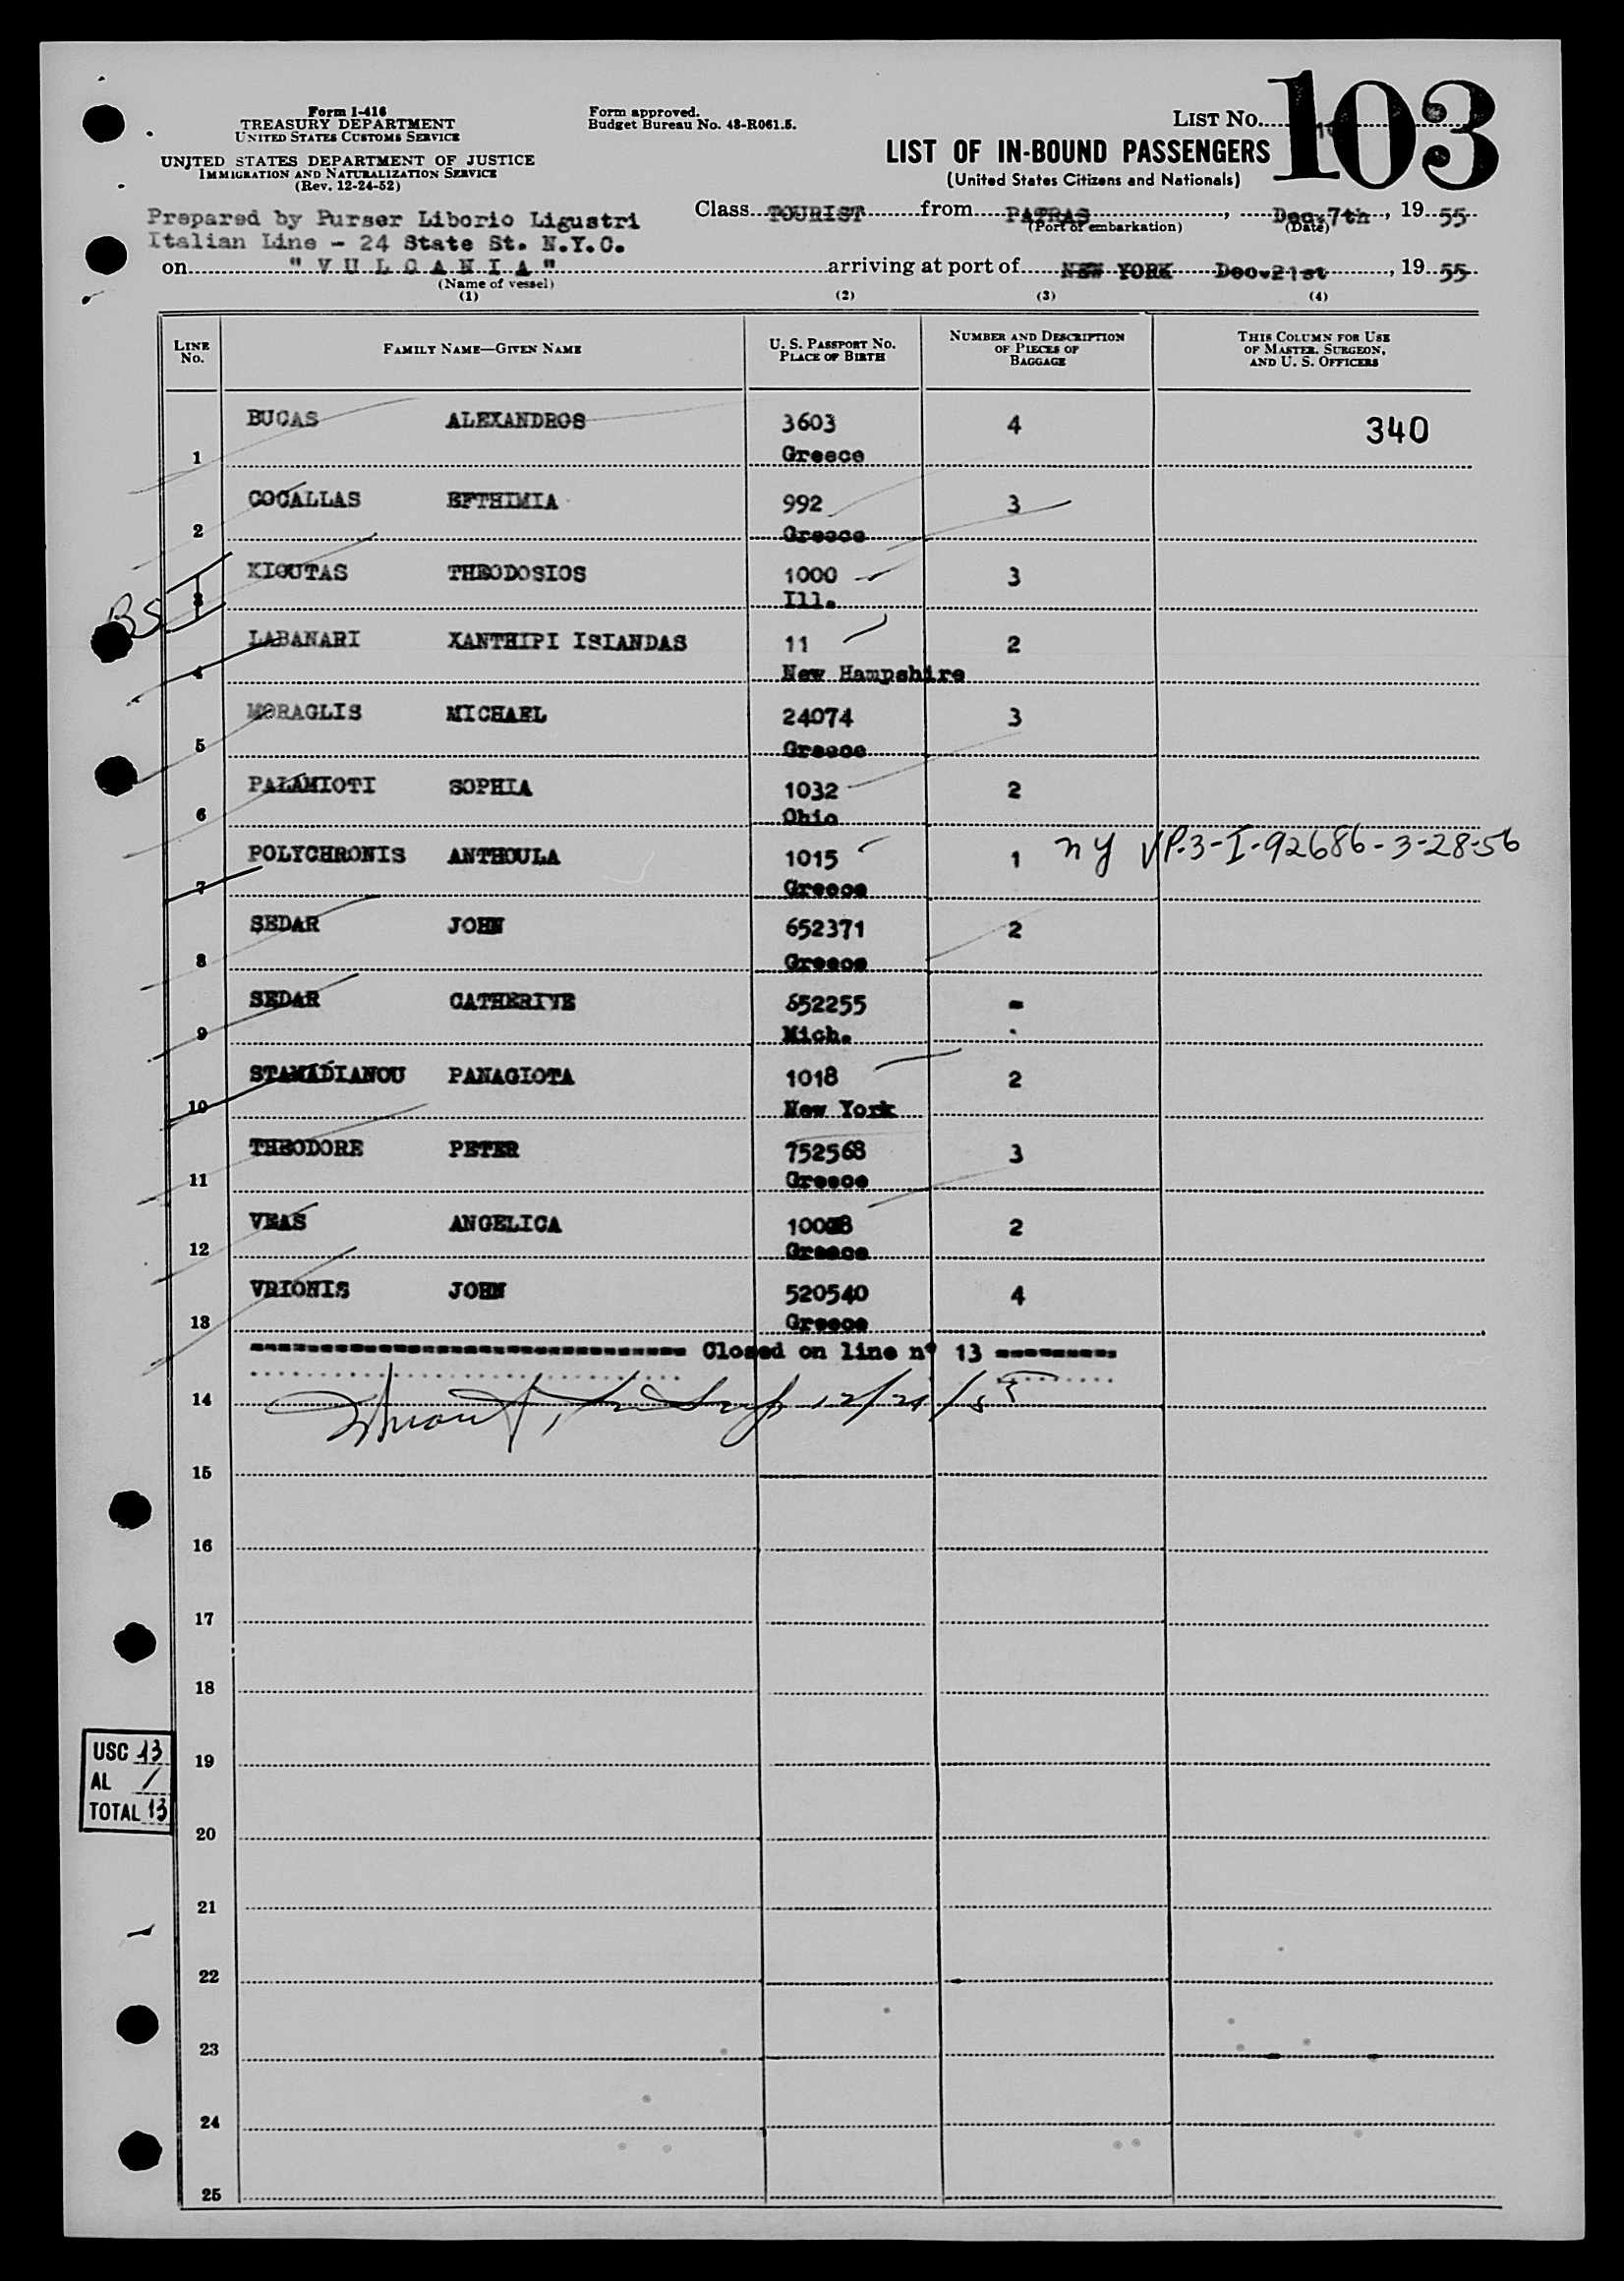 Form I-416
TREASURY DEPARTMENT
UNITED STATES CUSTOMS SERVICE
UNITED STATES DEPARTMENT OF JUSTICE
IMMIGRATION AND NATURALIZATION SERVICE
(Rev. 12-24-52)
Form approved.
Budget Bureau No. 43-R061.5.
LIST No.
103
LIST OF IN-BOUND PASSENGERS
(United States Citizens and Nationals)
Prepared by Purser Liborio Ligustri
Italian Line - 24 State St. N.Y.C.
Class TOURIST from PATRAS, Dec. 7th, 19 55
(Port of embarkation) (Date)
on "VULCANIA" arriving at port of NEW YORK Dec. 21st, 19 55
(Name of vessel)
(1) (2) (3) (4)
LINE No. FAMILY NAME—GIVEN NAME U. S. PASSPORT No. PLACE OF BIRTH NUMBER AND DESCRIPTION OF PIECES OF BAGGAGE THIS COLUMN FOR USE OF MASTER, SURGEON, AND U. S. OFFICERS
BUCAS ALEXANDROS 3603 4 340
1 Greece
COCALLAS EFTHIMIA 992 3
2 Greece
KIOUTAS THEODOSIOS 1000 3
BS 3 Ill.
LABANARI XANTHIPI ISIANDAS 11 2
4 New Hampshire
MORAGLIS MICHAEL 24074 3
5 Greece
PALAMIOTI SOPHIA 1032 2
6 Ohio
POLYCHRONIS ANTHOULA 1015 1 ny VP-3-I-92686-3-28-56
7 Greece
SEDAR JOHN 652371 2
8 Greece
SEDAR CATHERINE 652255 -
9 Mich.
STAMADIANOU PANAGIOTA 1018 2
10 New York
THEODORE PETER 752568 3
11 Greece
VEAS ANGELICA 2
12 Greece
VRIONIS JOHN 520540 4
13 Greece
Closed on line n° 13
14 12/21/55
15
16
17
18
USC 13
19
AL /
TOTAL 13
20
21
22
23
24
25